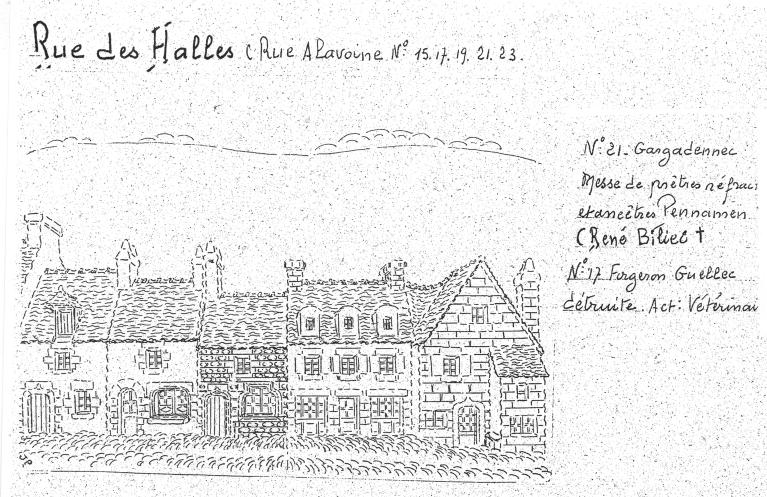 Rue des Halles ( Rue A Lavoine N° 15.17.19.21.23.
N° 21. Gargadennec
Messe de prêtres réfrac
et ancêtres Pennamen
( René Biliec †
N° 17 Forgeron Guellec
détruite. Act: Vétérinai